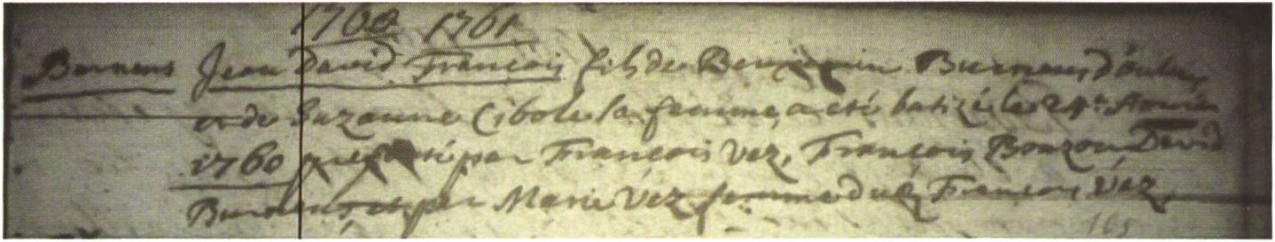 1760 1761
Burnens Jean David François fils de Benjamin Burnens d'Oulens
et de Suzanne Cibole sa femme, a été batizé le 24e Janvier
1760 présenté par François Vez, François Bonzon David
Burnens, et par Marie Vez femme dud. François Vez,
165